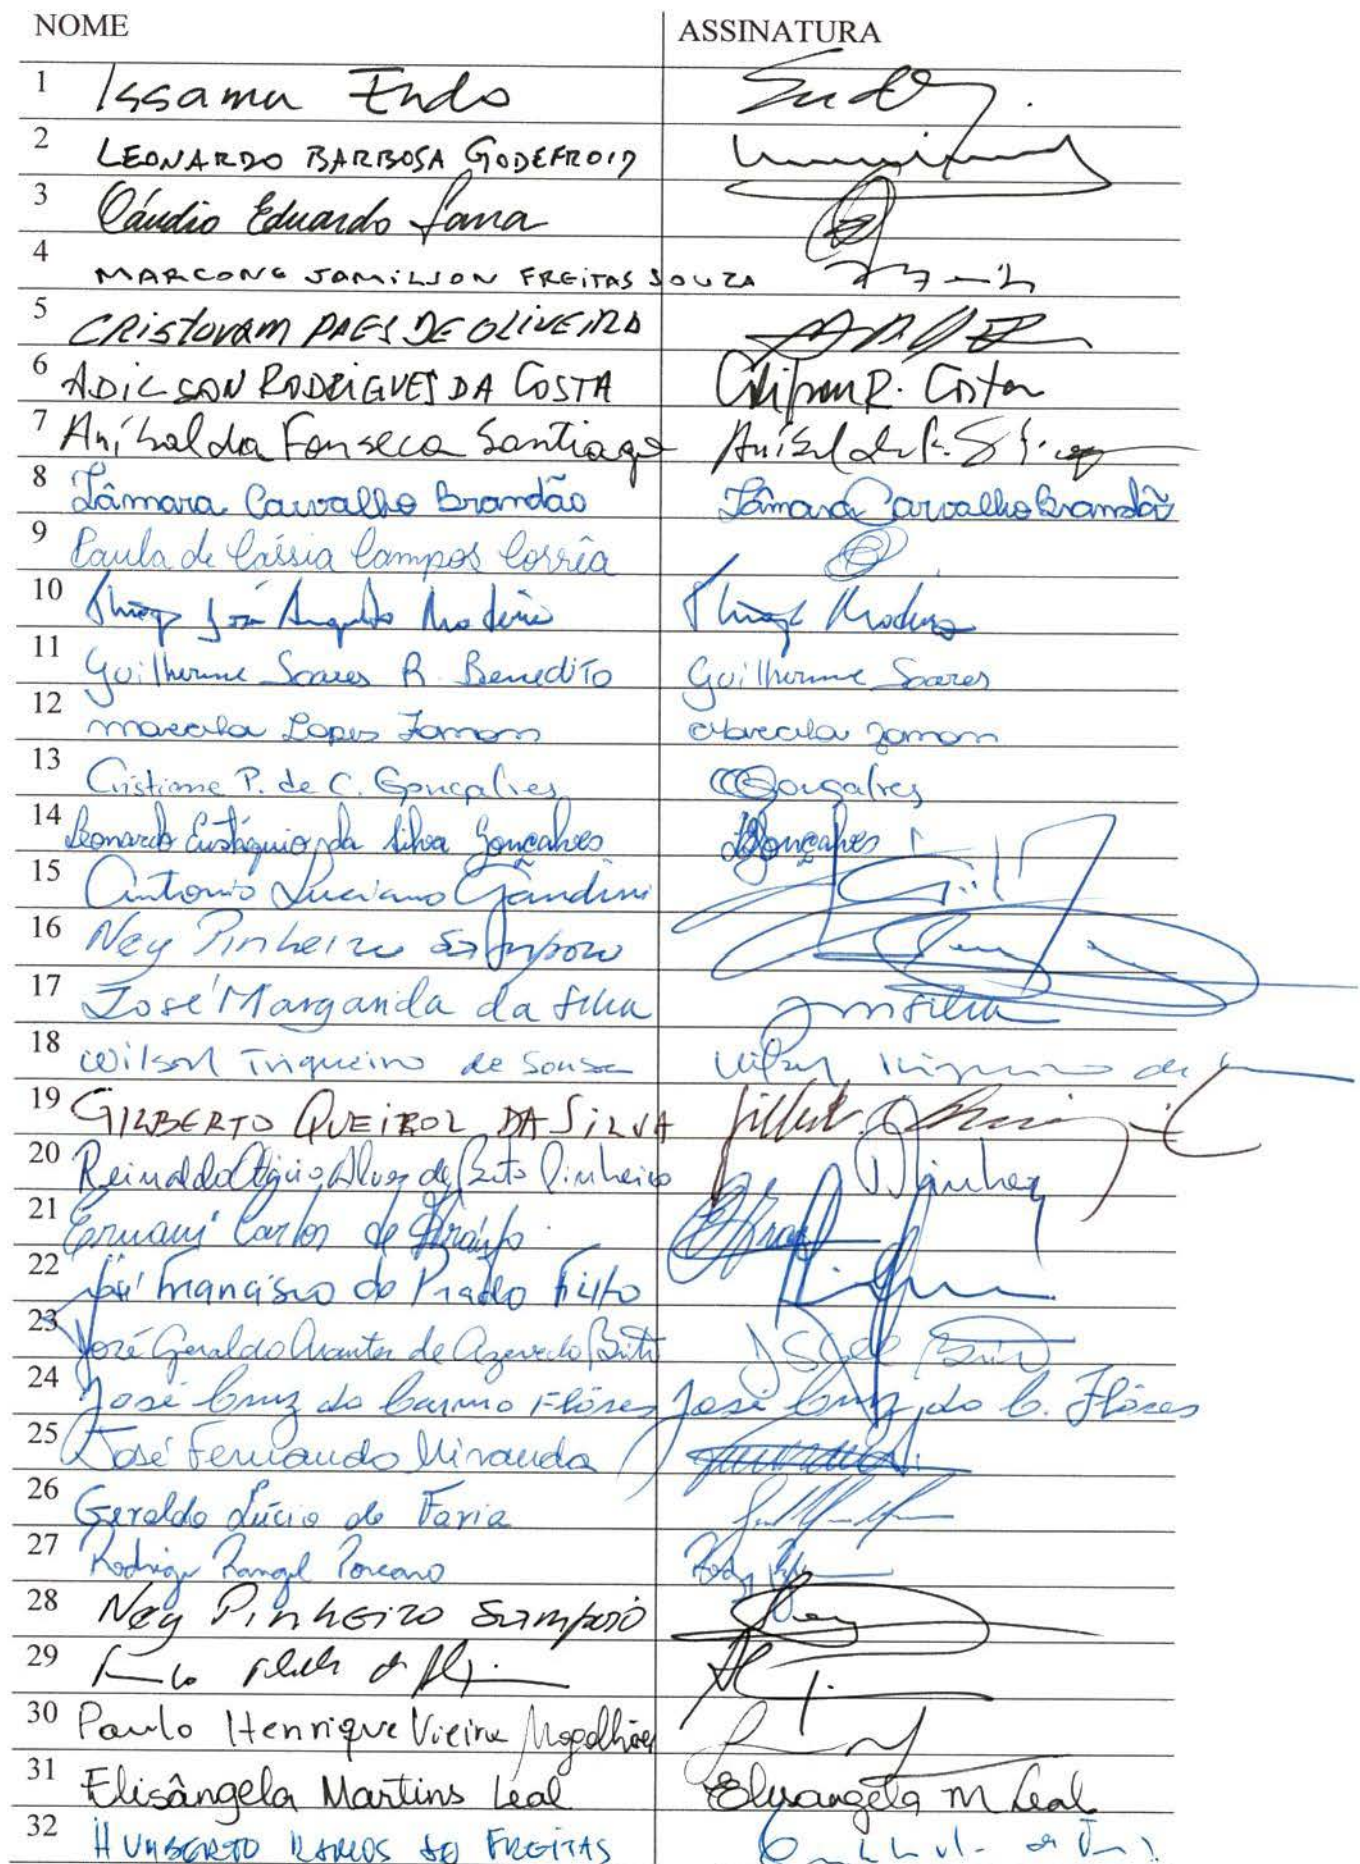 NOME ASSINATURA
1 Issamu Endo Endo
2 LEONARDO BARBOSA GODEFROID
3 Cláudio Eduardo Lana
4 MARCONE JAMILSON FREITAS SOUZA
5 CRISTOVAM PAES DE OLIVEIRA
6 ADILSON RODRIGUES DA COSTA Adilson R. Costa
7 Aníbal da Fonseca Santiago Aníbal da F. Santiago
8 Tâmara Carvalho Brandão Tâmara Carvalho Brandão
9 Paula de Cássia Campos Corrêa
10 Thiago José Augusto Madeira Thiago Madeira
11 Guilherme Soares R. Benedito Guilherme Soares
12 Marcela Lopes Zamon Marcela Zamon
13 Cristiane P. de C. Gonçalves Gonçalves
14 Leonardo Eustáquio da Silva Gonçalves Gonçalves
15 Antonio Luciano Gandini
16 Ney Pinheiro Sampaio Ney
17 José Margarida da Silva JMSilva
18 Wilson Trigueiro de Sousa Wilson Trigueiro de
19 GILBERTO QUEIROZ DA SILVA Gilberto
20 Reinaldo Alves de Brito Pinheiro Pinheiro
21 Ernani Carlos de Araújo
22 José Francisco do Prado Filho
23 José Geraldo Arantes de Azevedo Brito Brito
24 José Cruz do Carmo Flôres José Cruz do C. Flôres
25 José Fernando Miranda
26 Geraldo Lúcio de Faria
27 Rodrigo Rangel Porcaro
28 Ney Pinheiro Sampaio Ney
29
30 Paulo Henrique Vieira Magalhães
31 Elisângela Martins Leal Elisangela M Leal
32 HUMBERTO RAMOS DE FREITAS